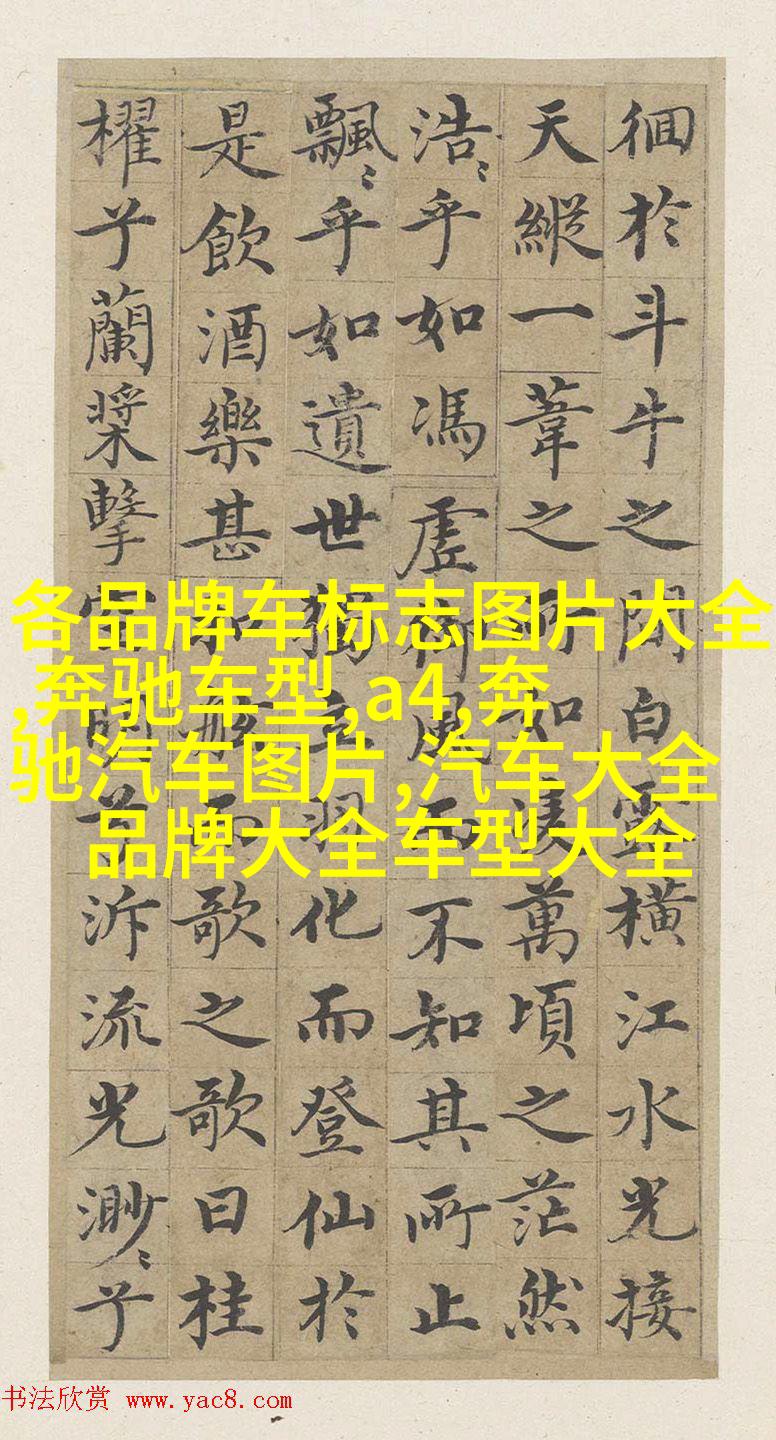 徊於斗牛之間白露橫江水光接
天縱一葦之所如淩萬頃之茫然
浩〻乎如馮虛御風而不知其所止
飄〻乎如遺世獨立羽化而登仙於
是飲酒樂甚扣舷而歌之歌曰桂
櫂兮蘭槳擊空明兮泝流光渺〻兮
各品牌车标志图片大全
,奔驰车型,a4,奔
驰汽车图片,汽车大全
品牌大全车型大全
书法欣赏 www.yac8.com